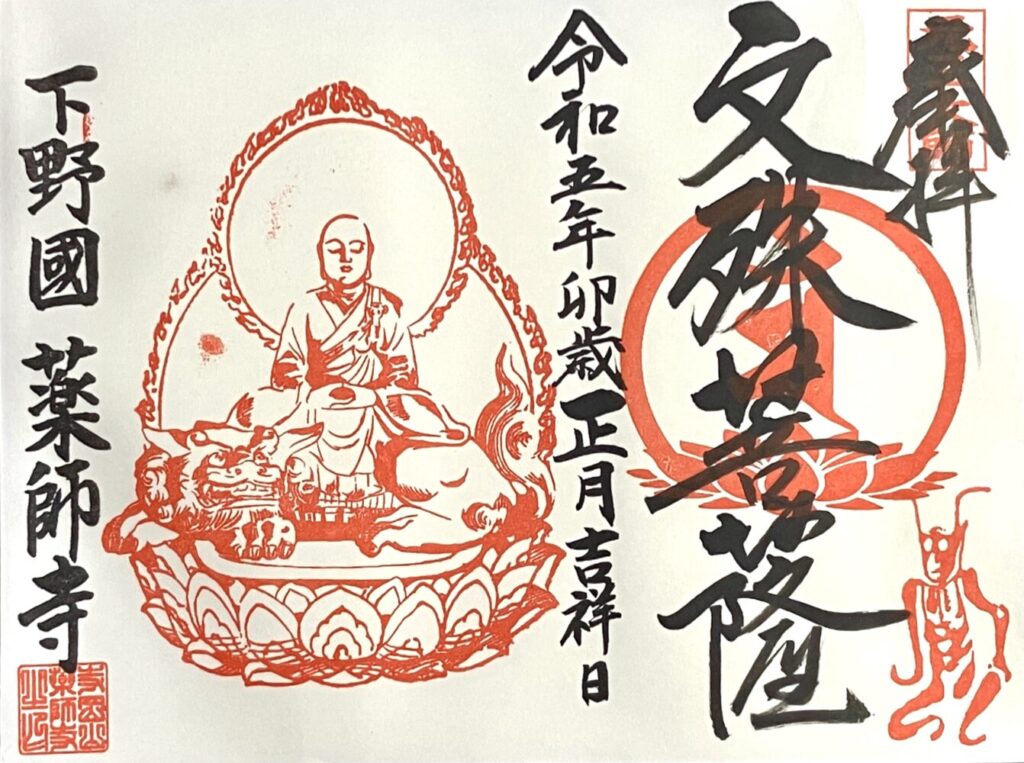 奉拝
文殊菩薩
令和五年卯歳正月吉祥日
下野國 薬師寺